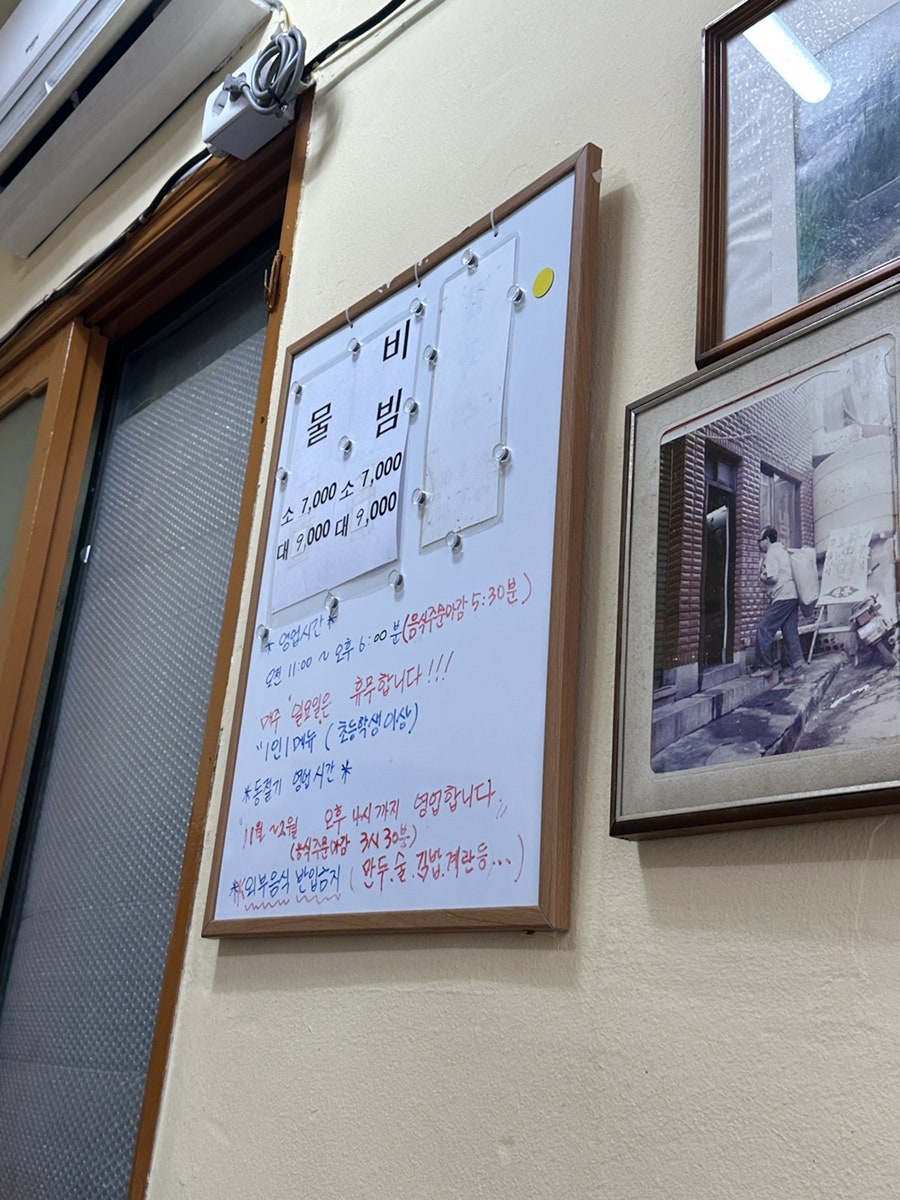 비빔
물
소 7,000 소 7,000
대 9,000 대 9,000
* 영업시간 *
오전 11:00 ~ 오후 6:00분 (음식주문마감 5:30분)
매주 "일요일은 휴무합니다!!!
"1인 1메뉴 (초등학생 이상)
*동절기 영업시간*
"11월 ~ 2월 오후 4시까지 영업합니다"
(음식주문마감 3시 30분)
**외부음식 반입금지 (만두.술.김밥.계란등...)